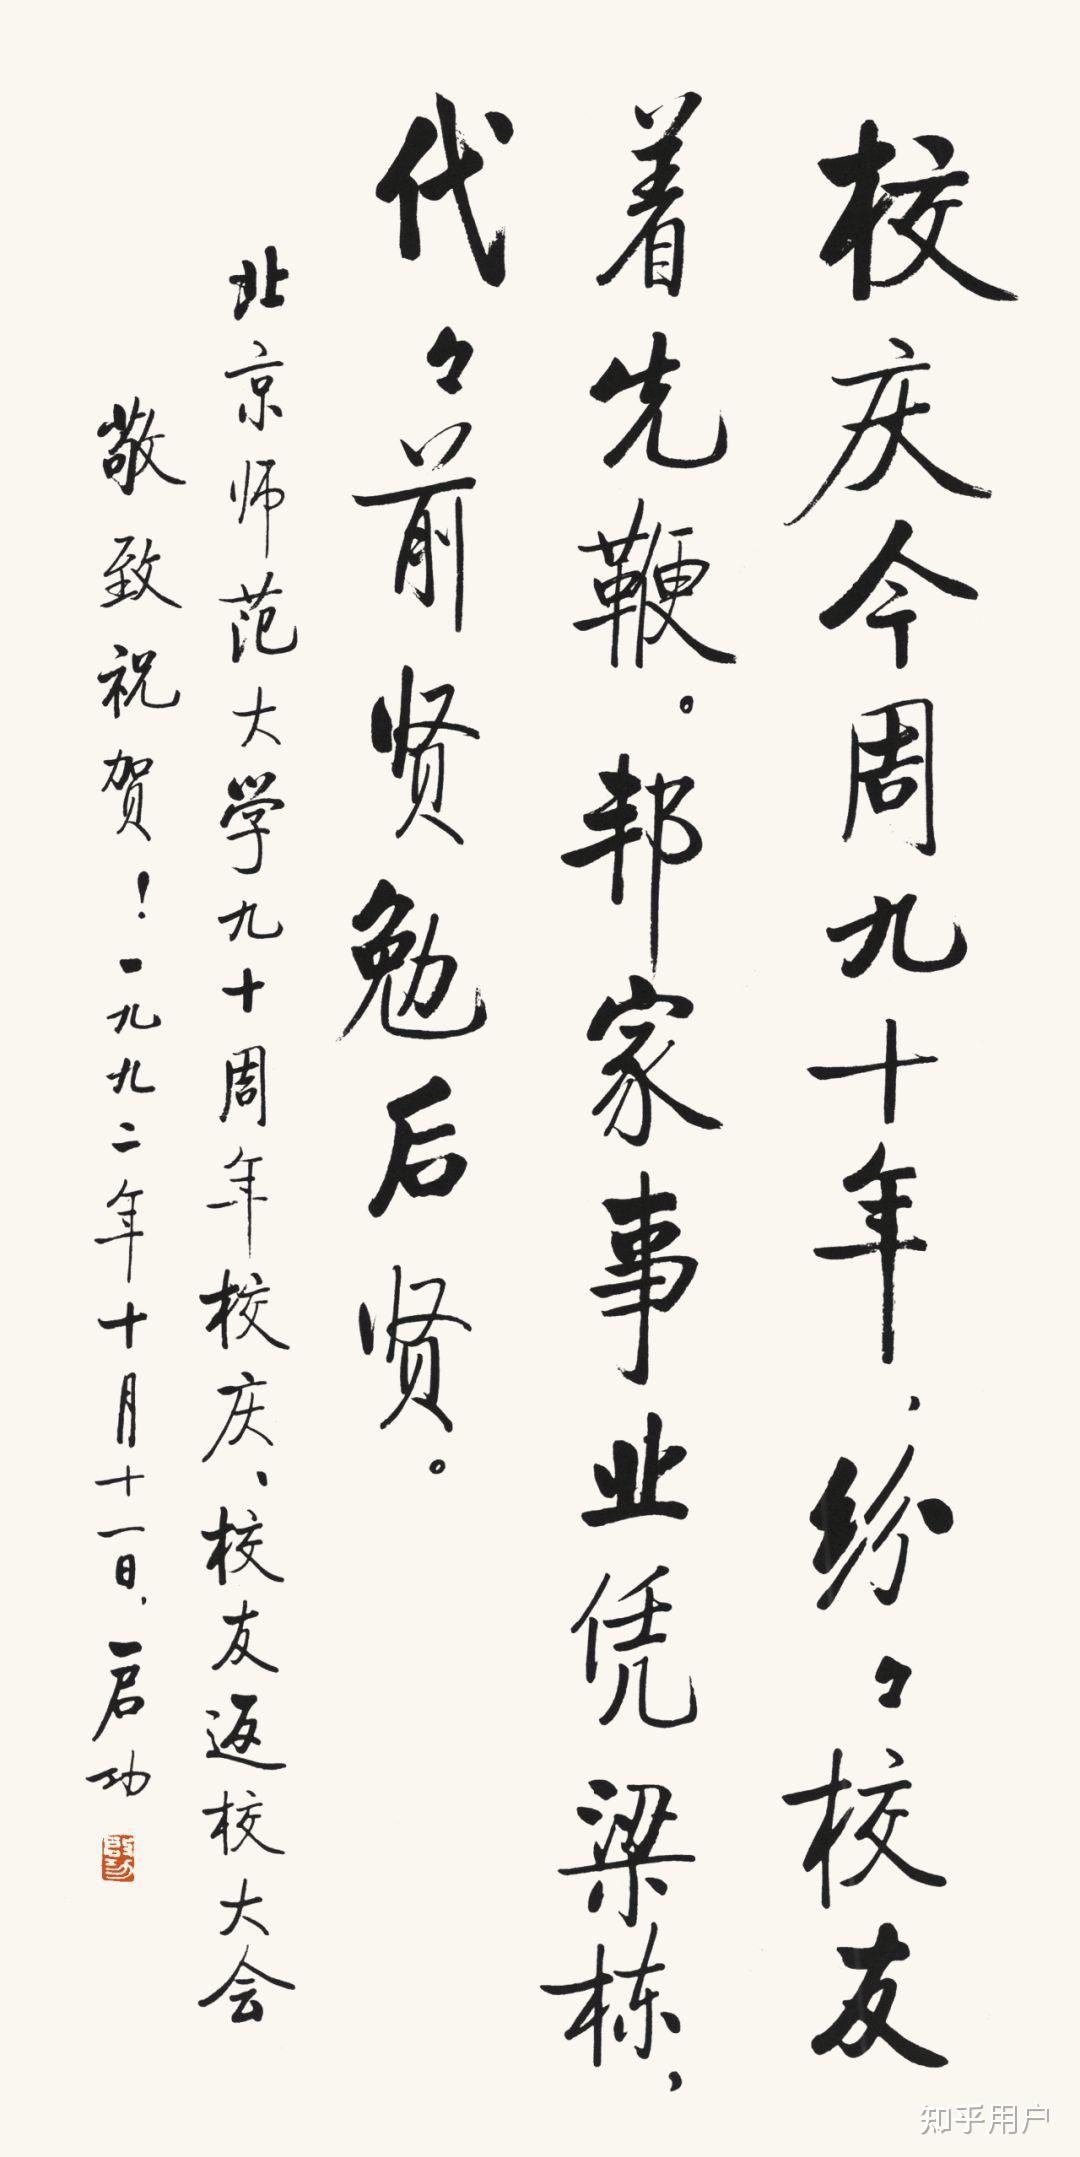 校庆今周九十年，纷々校友
着先鞭。邦家事业凭梁栋，
代々前贤勉后贤。
北京师范大学九十周年校庆、校友返校大会
敬致祝贺！一九九二年十月十一日，启功
启功
知乎用户